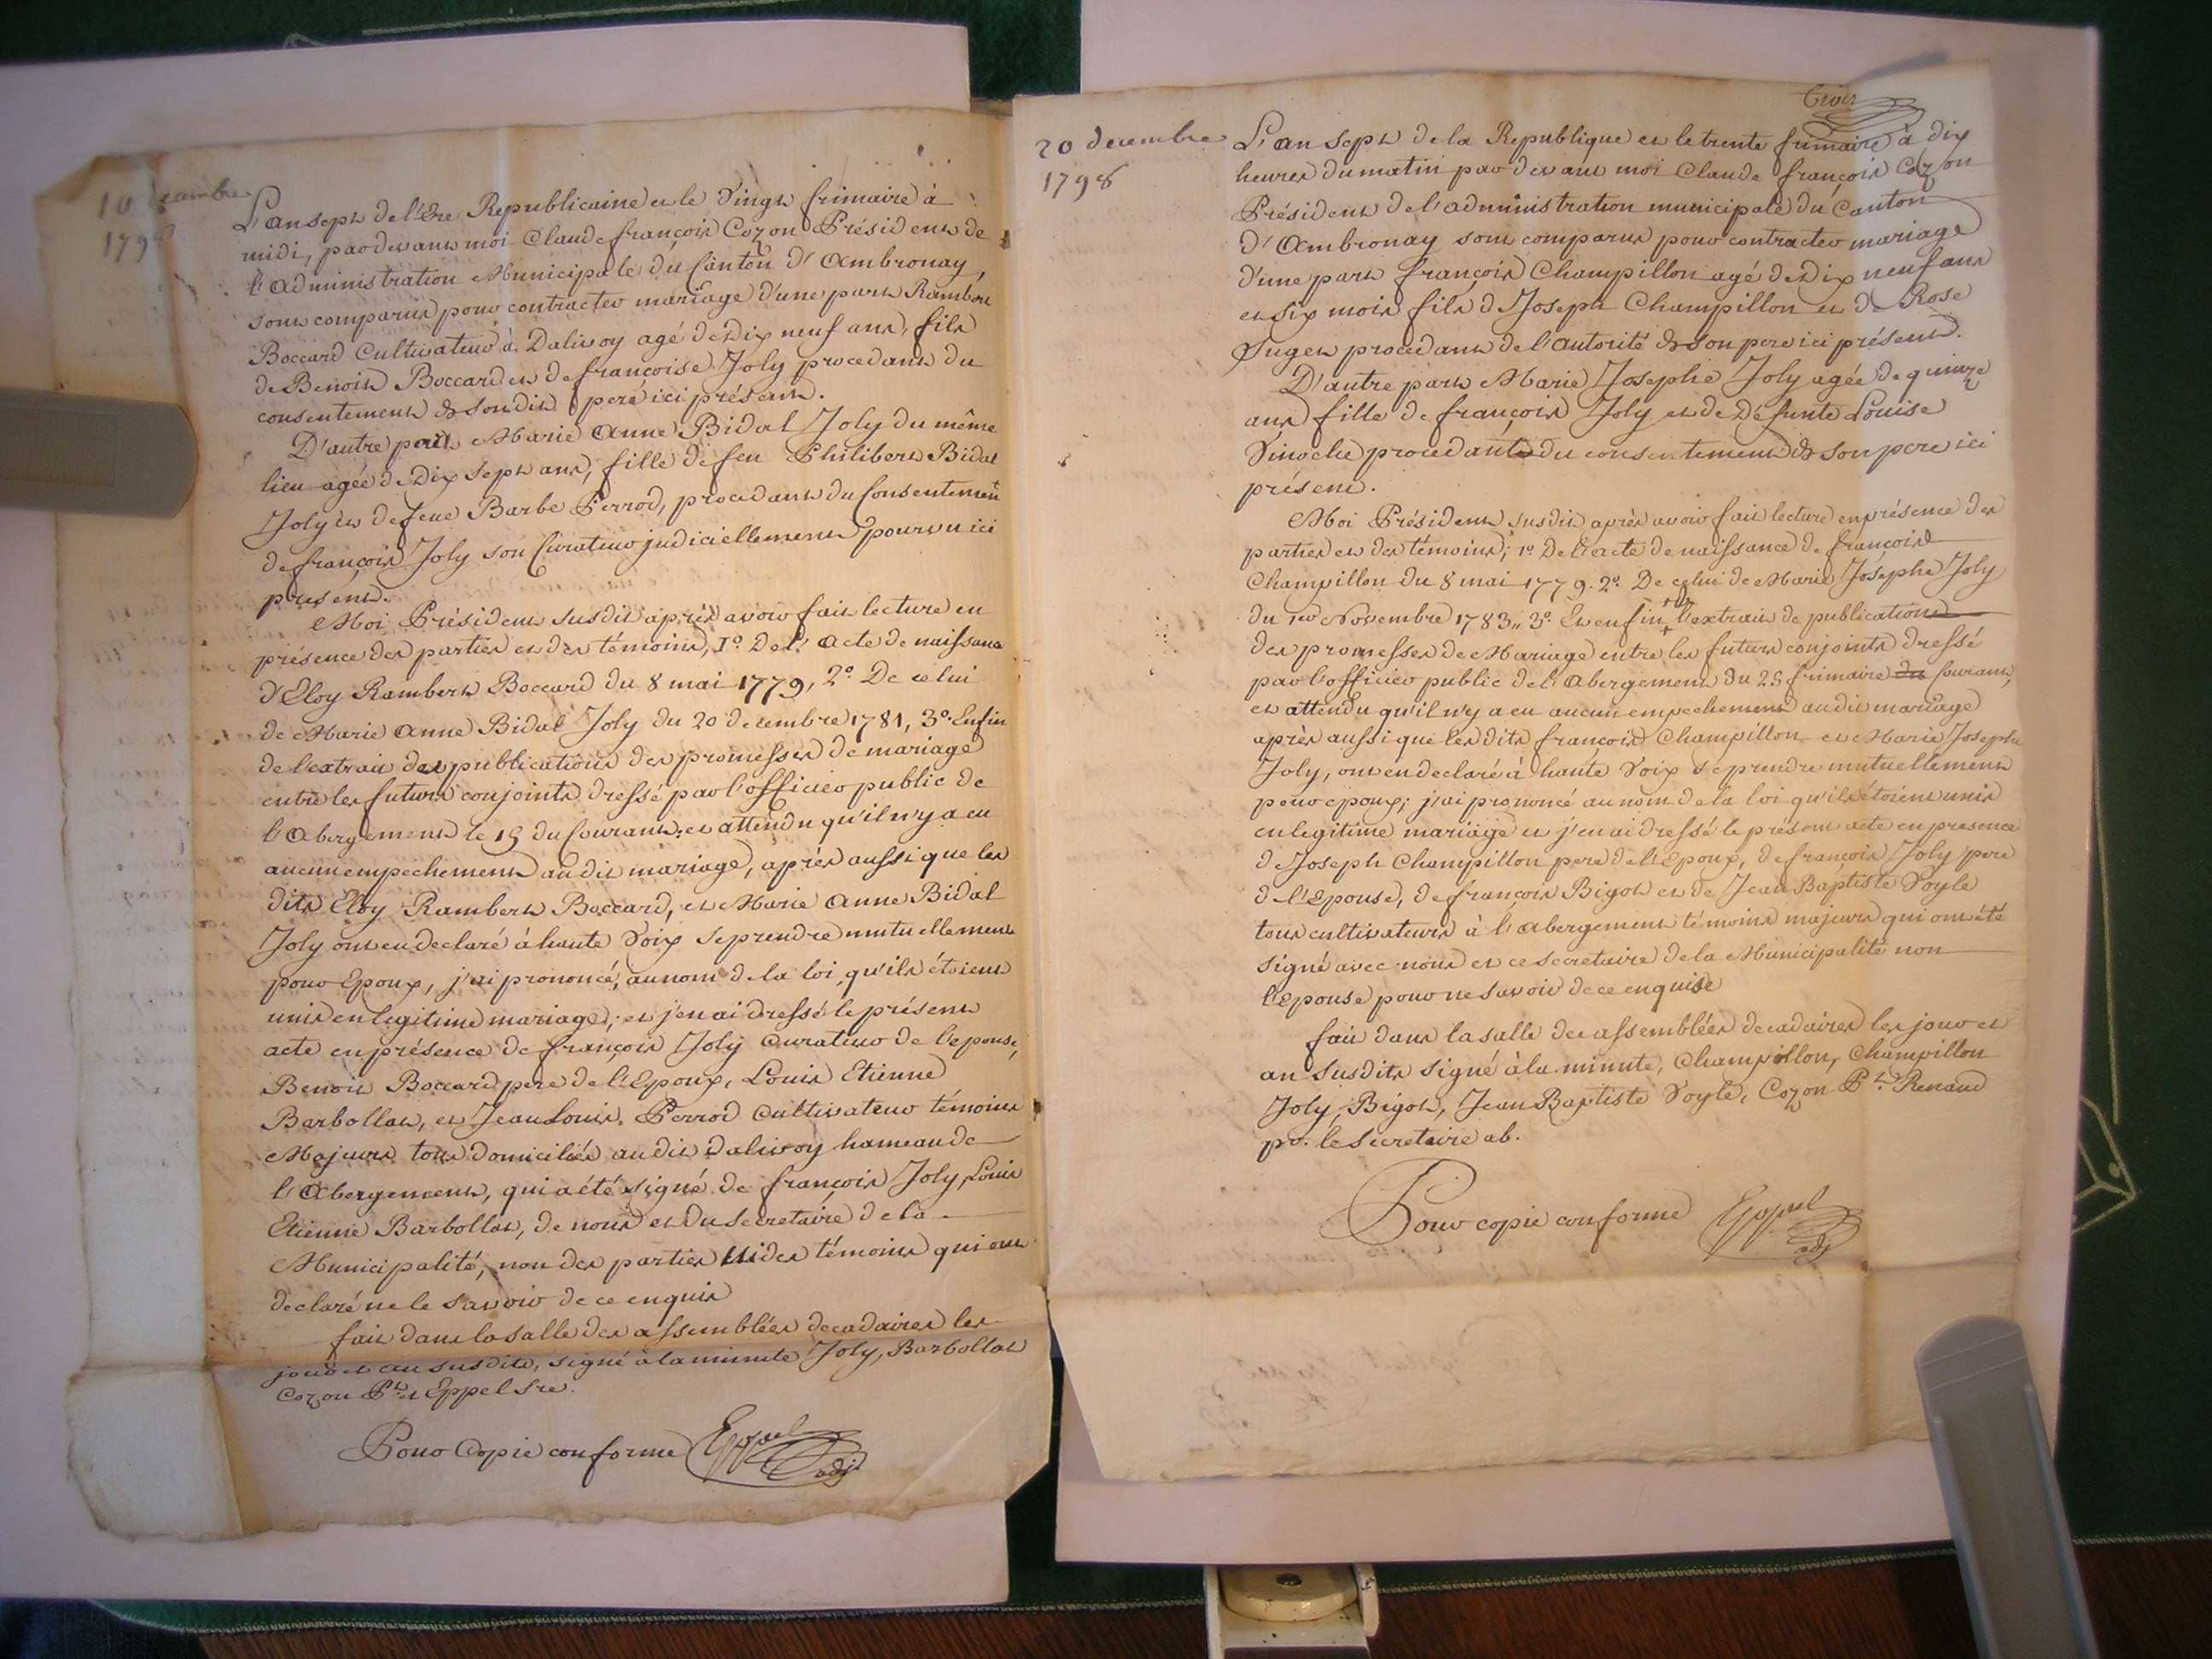 10 decembre
1798
L'an sept de l'Ere Republicaine et le Vingt frimaire à
midi, par devant moi Claude françois Cozon Président de
l'Administration Municipale du Canton d'Ambronay,
sont comparus pour contracter mariage d'une part Rambert
Boccard Cultivateur à Dalivoy agé de Dix neuf ans, fils
de Benoit Boccard et de françoise Joly procedant du
consentement de son dit pere ici présent.
D'autre part Marie Anne Bidal Joly du même
lieu agée de Dix sept ans, fille de feu Philibert Bidal
Joly et de feue Barbe Perrod, procedant du Consentement
de françois Joly son Curateur judiciellement pourvu ici
présent.
Moi Président susdit après avoir fait lecture en
présence des parties et des témoins, 1º. De l'Acte de naissance
d'Eloy Rambert Boccard du 8 mai 1779, 2º. De celui
de Marie Anne Bidal Joly du 20 decembre 1781, 3º. Enfin
de l'extrait des publications des promesses de mariage
entre les futurs conjoints dressé par l'officier public de
l'Abergement le 19 du Courant; et attendu qu'il n'y a eu
aucun empechement au dit mariage, après aussi que les
dits Eloy Rambert Boccard, et Marie Anne Bidal
Joly ont eu declaré à haute Voix se prendre mutuellement
pour Epoux, j'ai prononcé, au nom de la loi, qu'ils étoient
unis en legitime mariage; et j'en ai dressé le présent
acte en présence de françois Joly Curateur de l'epouse,
Benoit Boccard pere de l'Epoux, Louis Etienne
Barbollat, et Jean Louis Perrod Cultivateur témoins
Majeurs tous domiciliés au dit Dalivoy hameau de
l'Abergement, qui a été signé de françois Joly, Louis
Etienne Barbollat, de nous et du Secretaire de la
Municipalité, non des parties ni des témoins qui ont
declaré ne le savoir de ce enquis
fait dans la salle des assemblées decadaires les
jour et an susdits, signé à la minute Joly, Barbollat
Cozon Pt. et Eppel Sre.
Pour Copie conforme Eppel
adj.
trois
20 decembre
1798
L'an sept de la Republique et le trente frimaire à dix
heures du matin par devant moi Claude françois Cozon
Président de l'administration municipale du Canton
d'Ambronay sont comparus pour contracter mariage
d'une part françois Champillon agé de Dix neuf ans
et six mois fils de Joseph Champillon et de Rose
Suget procedant de l'autorité de son pere ici présent.
D'autre part Marie Josephe Joly agée de quinze
ans fille de françois Joly et de Défunte Louise
Vinoche procedante du consentement de son pere ici
présent.
Moi Président susdit après avoir fait lecture en présence des
parties et des témoins; 1º. De l'acte de naissance de françois
Champillon du 8 mai 1779. 2º. De celui de Marie Josephe Joly
du 1er Novembre 1783,, 3º. Et enfin de l'extrait de publications
des promesses de Mariage entre les futurs conjoints dressé
par l'officier public de l'Abergement du 29 frimaire du Courant,
et attendu qu'il n'y a eu aucun empechement au dit mariage
après aussi que les dits françois Champillon et Marie Josephe
Joly, ont eu declaré à haute Voix se prendre mutuellement
pour époux; j'ai prononcé au nom de la loi qu'ils étoient unis
en legitime mariage et j'en ai dressé le présent acte en presence
de Joseph Champillon pere de l'Epoux, de françois Joly pere
de l'Epouse, de françois Bigot et de Jean Baptiste Voyle
tous cultivateurs à l'Abergement témoins majeurs qui ont été
signé avec nous et ce secretaire de la Municipalité non
l'Epouse pour ne savoir de ce enquise
fait dans la salle des assemblées decadaires les jour et
an susdits signé à la minute, Champillon, Champillon
Joly, Bigot, Jean Baptiste Voyle, Cozon Pt. Renaud
pr. le Secretaire ab.
Pour copie conforme Eppel
adj